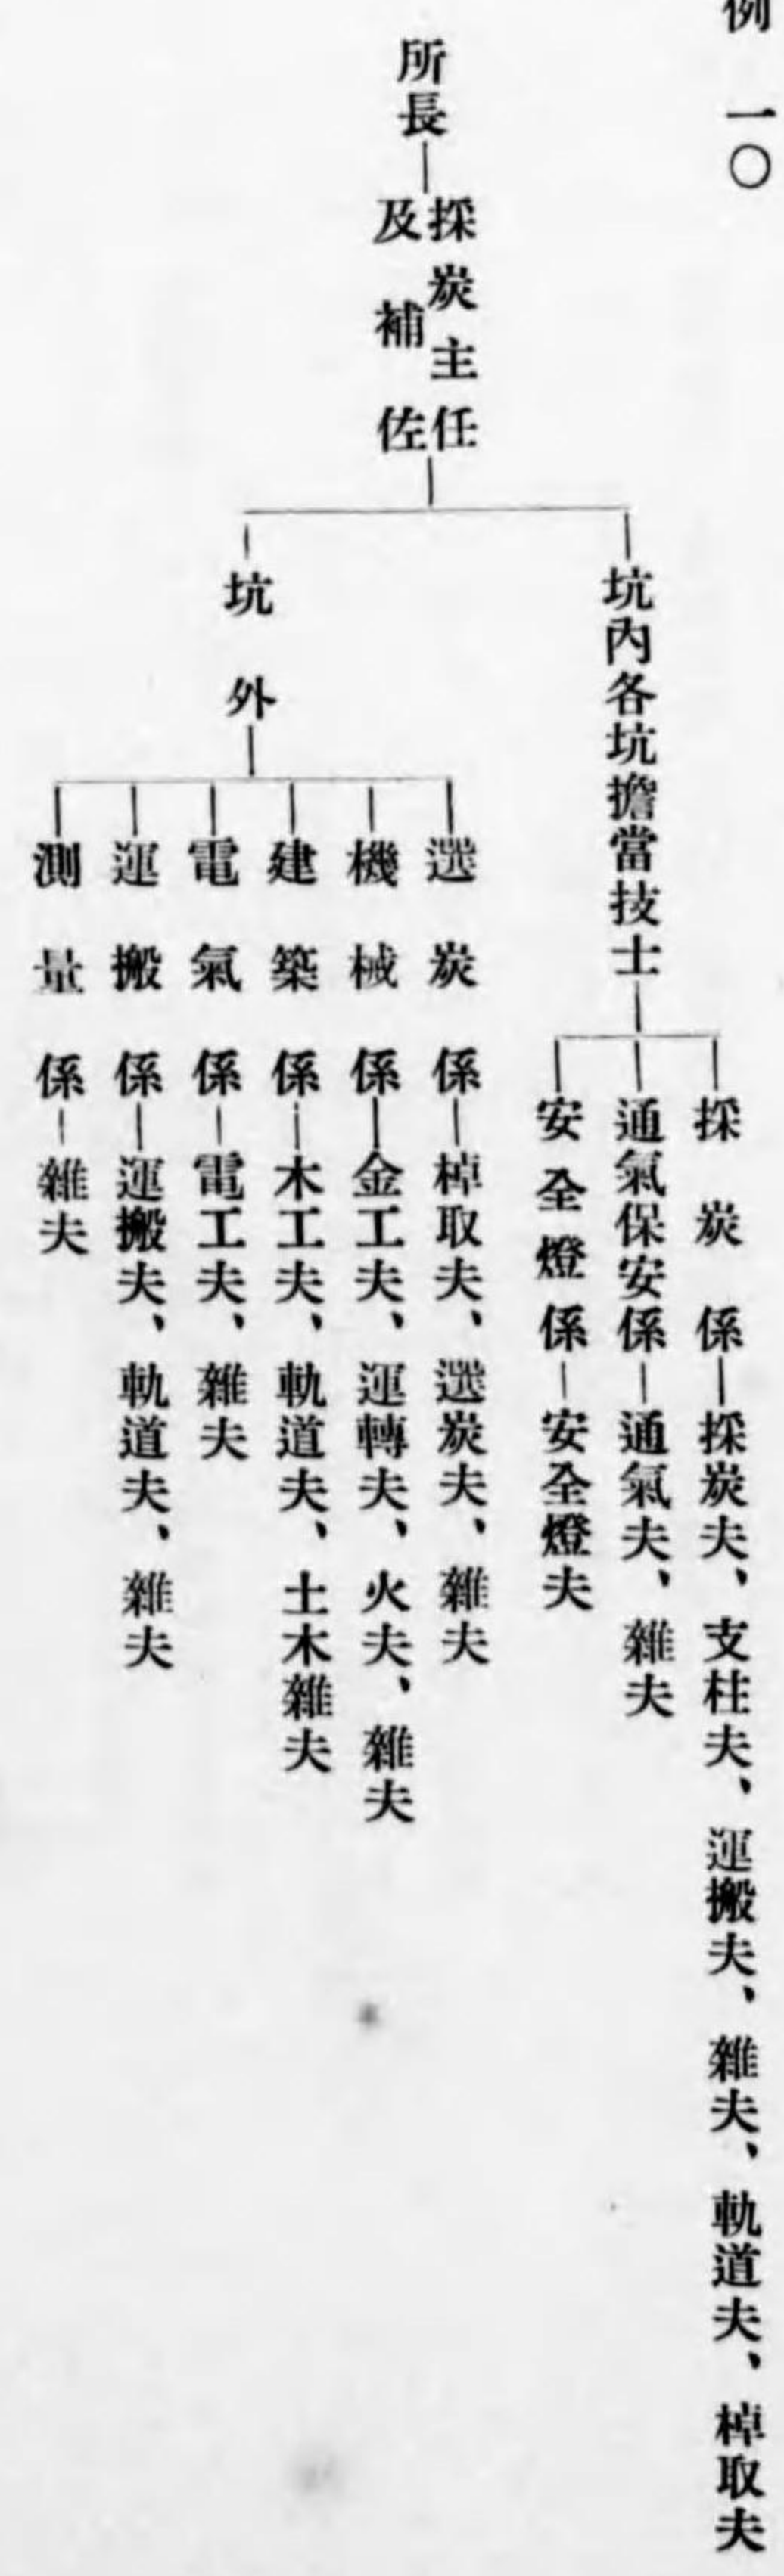 例一〇
所長
採炭主任
及補佐
坑內各坑擔當技士
採炭係
採炭夫、支柱夫、運搬夫、雜夫、軌道夫、棹取夫
通氣保安係
通氣夫、雜夫
安全燈係
安全燈夫
坑外
選炭係
棹取夫、選炭夫、雜夫
機械係
金工夫、運轉夫、火夫、雜夫
建築係
木工夫、軌道夫、土木雜夫
電氣係
電工夫、雜夫
運搬係
運搬夫、軌道夫、雜夫
測量係
雜夫